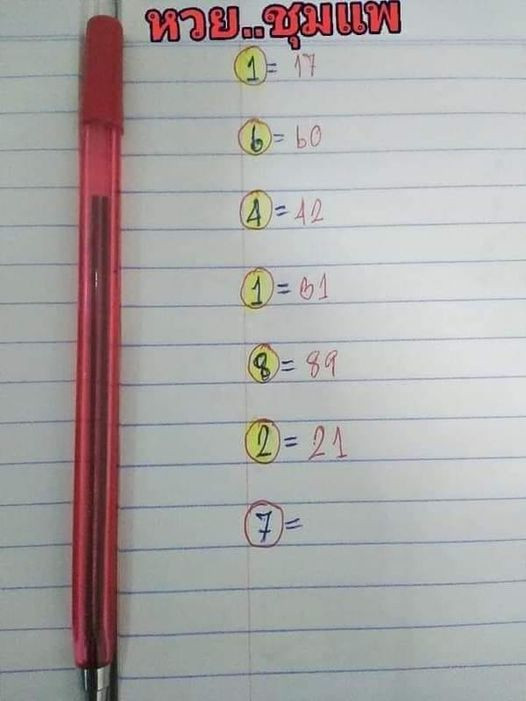 หวย..ชุมแพ
1 = 17
6 = 60
4 = 42
1 = 31
8 = 89
2 = 21
7 =